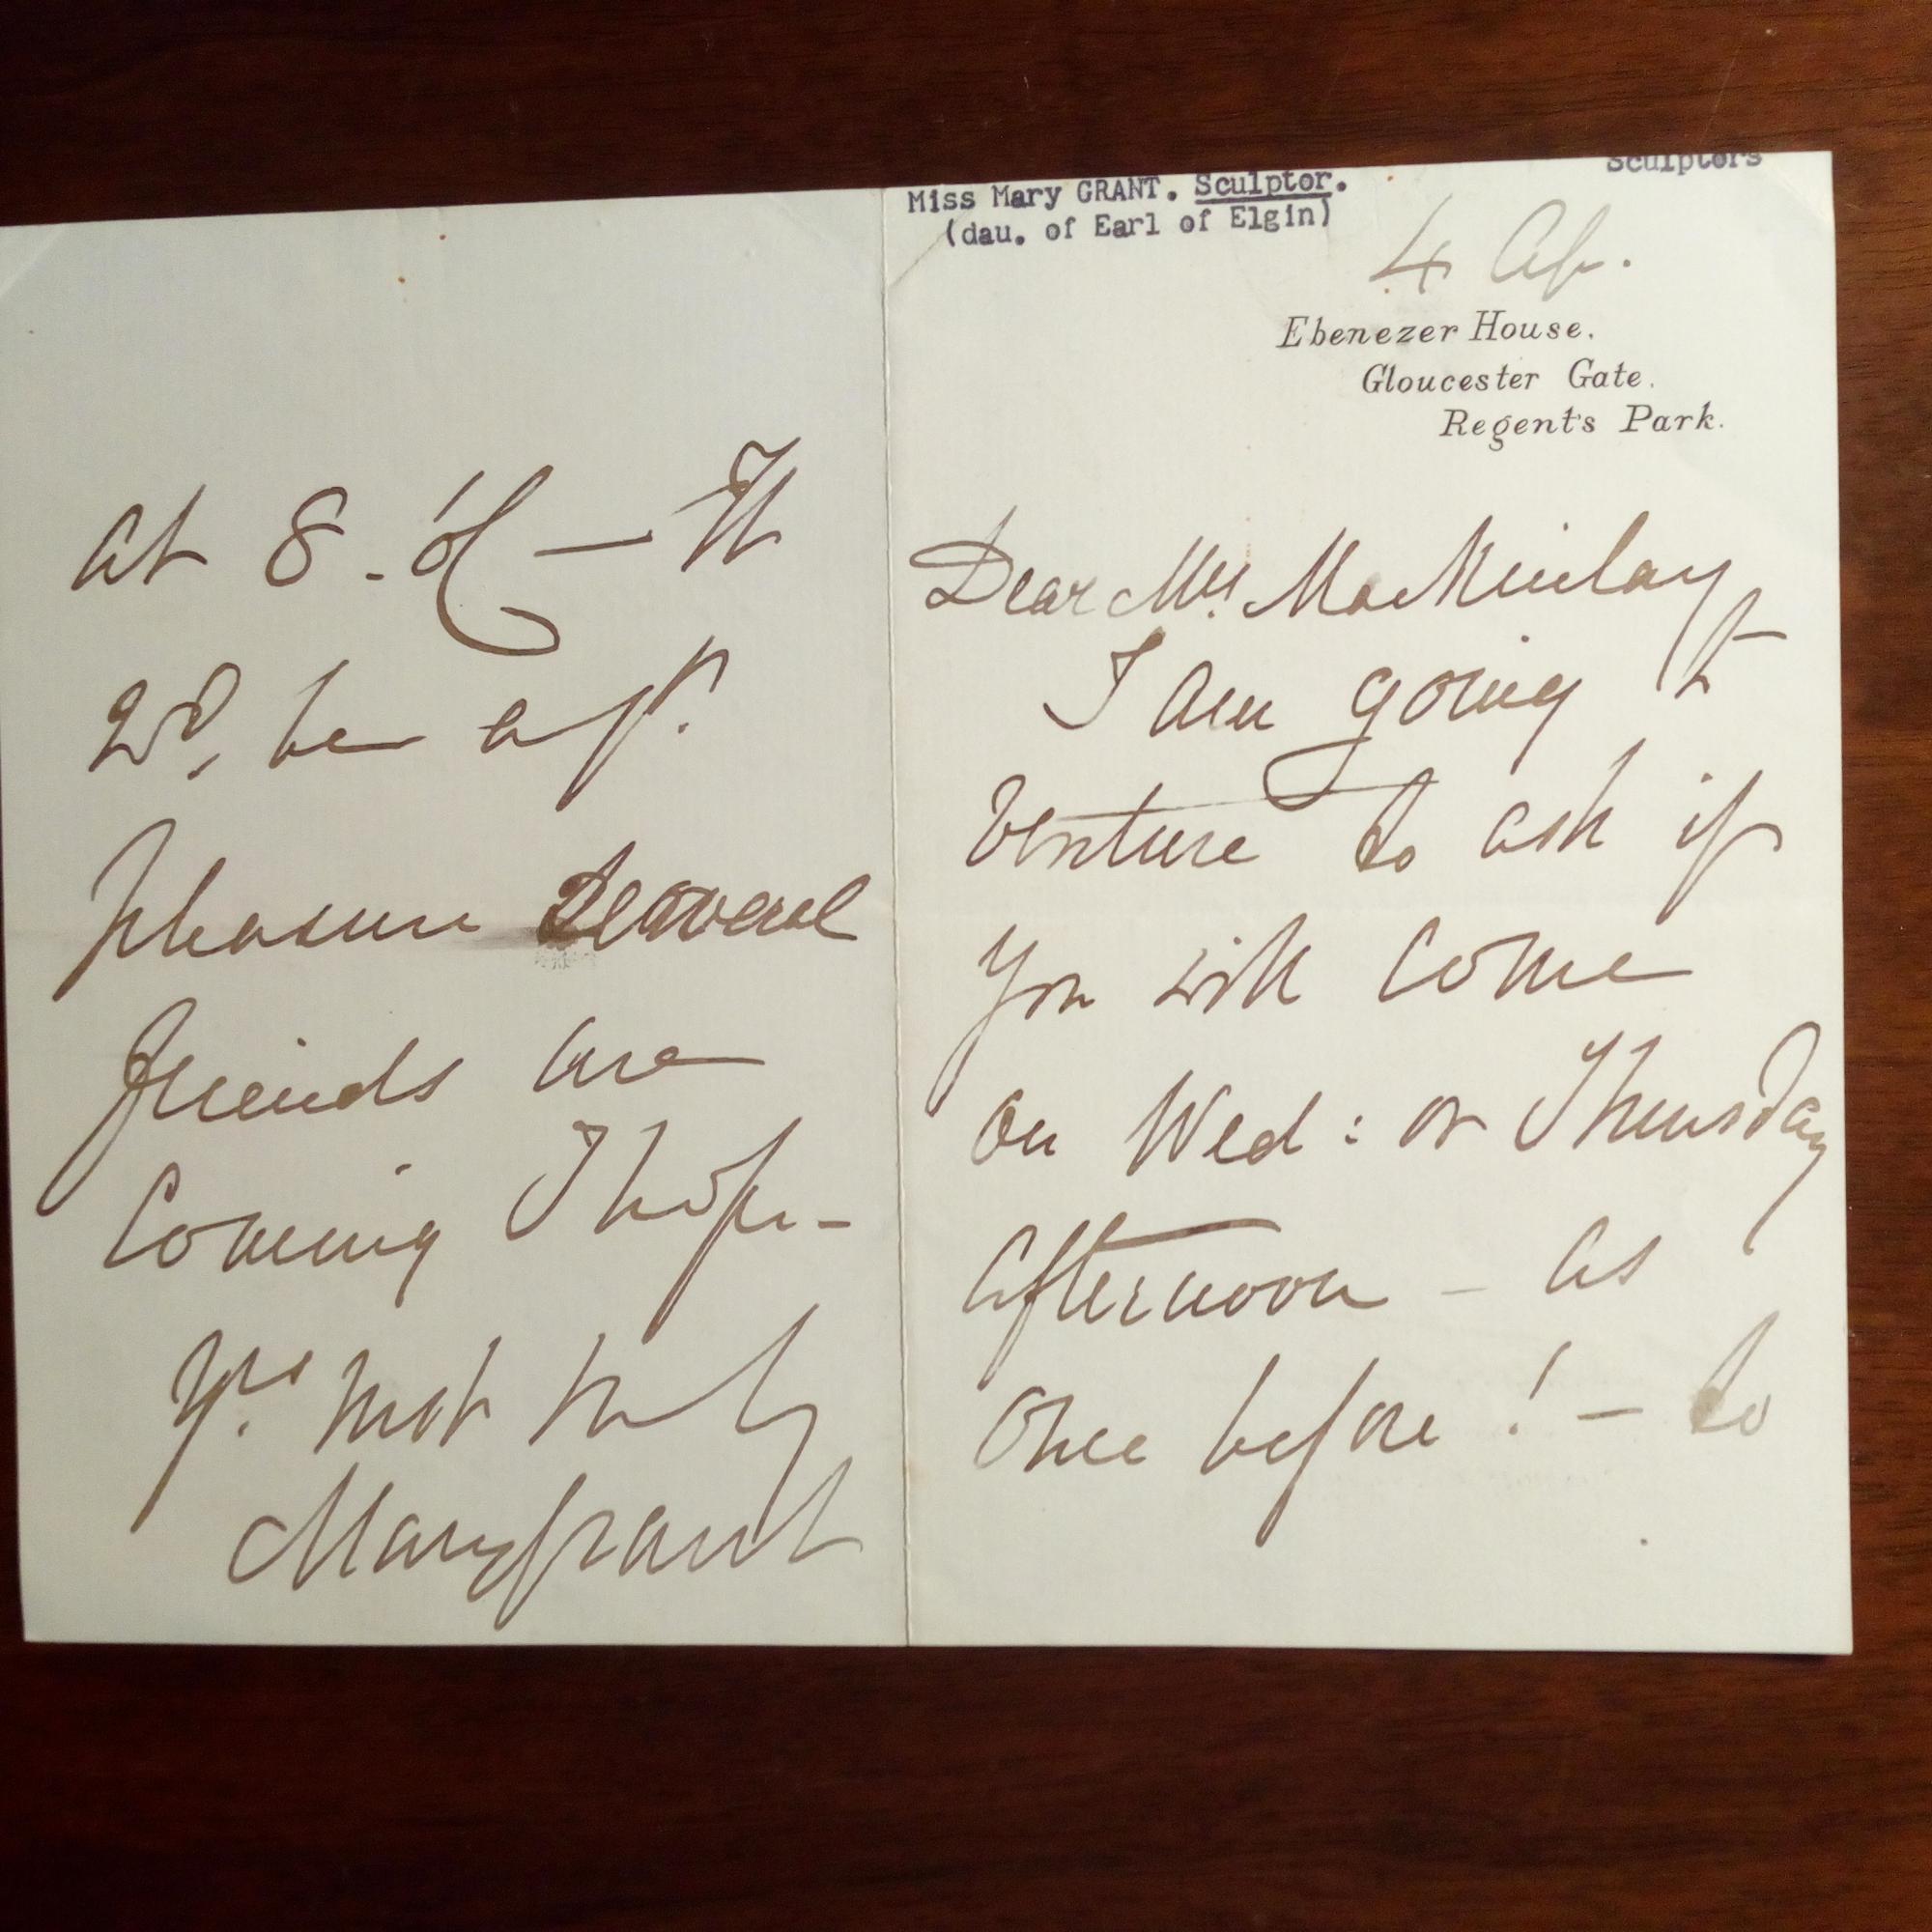 Miss Mary GRANT. Sculptor.
(dau. of Earl of Elgin)
Sculptors
4 Ap.
Ebenezer House.
Gloucester Gate.
Regent's Park.
Dear Mrs. MacKinlay
I am going to
venture to ask if
you will come
on Wed: or Thursday
afternoon - as
once before! - to
at 8. o'c — It
wd. be a gt.
pleasure Several
friends are
Coming I hope -
Yrs. most truly
Mary Grant